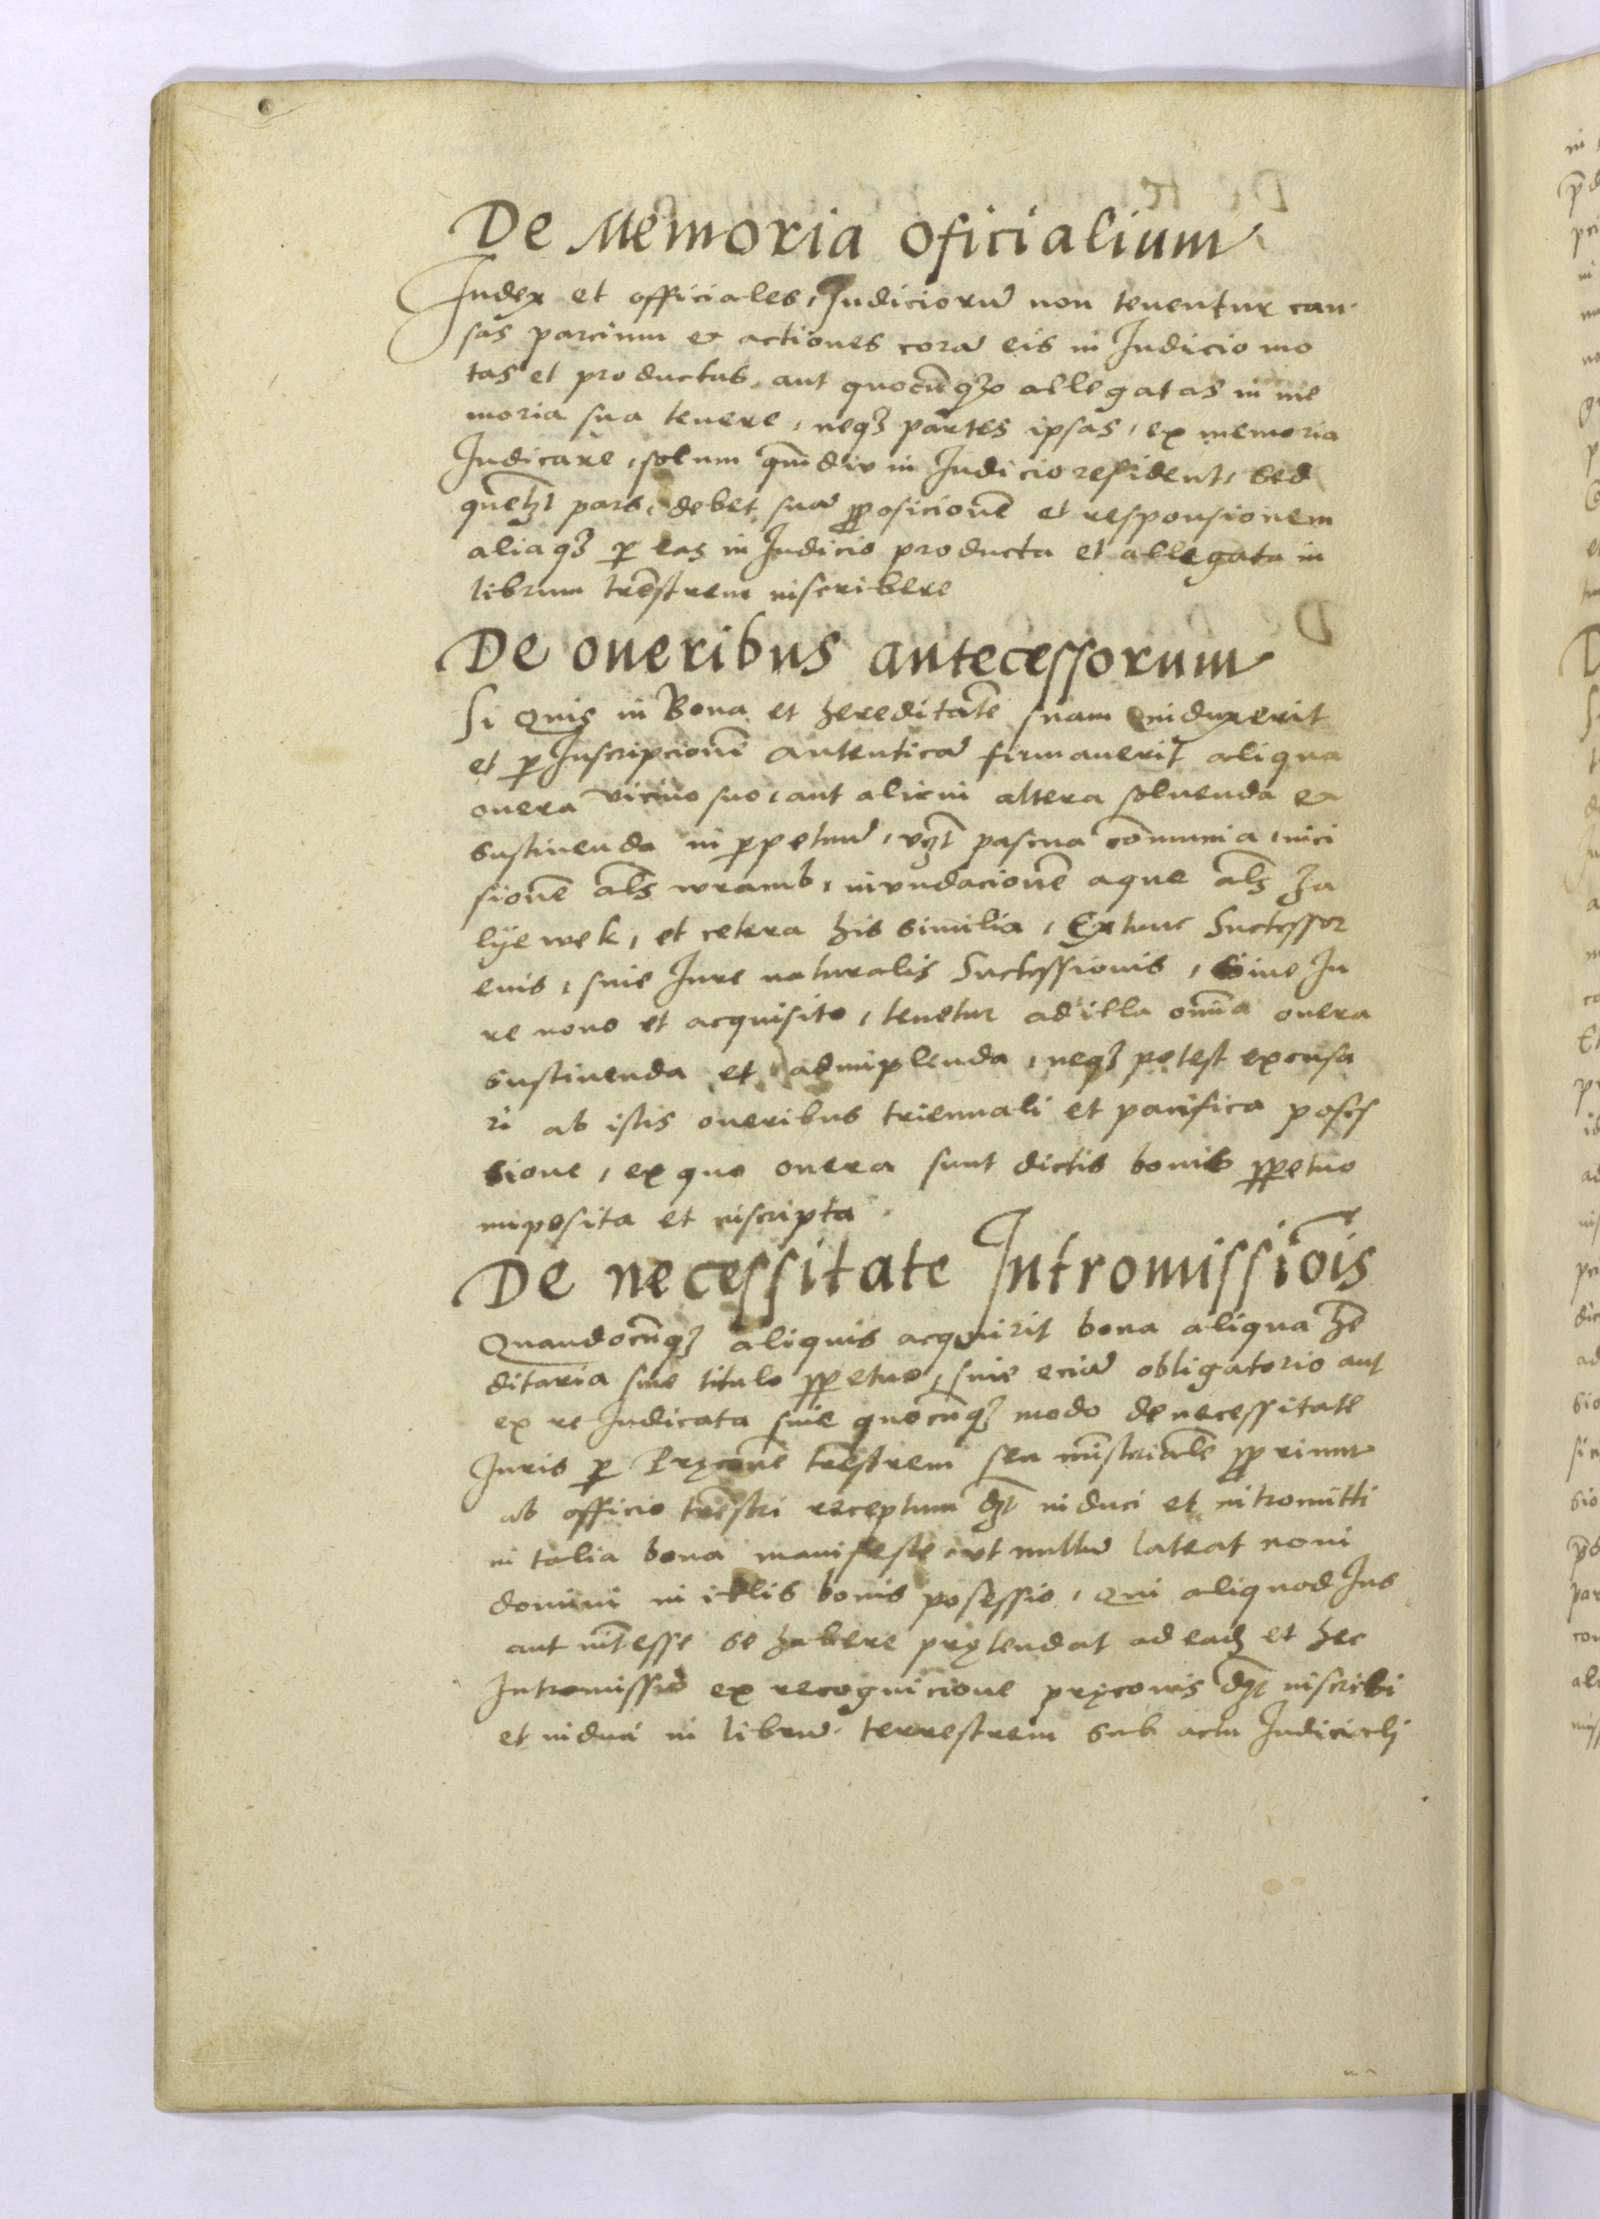 De Memoria oficialium
Iudex et officiales, Iudiciorū non tenentur cau-
sas parcium et actiones corā eis in Iudicio mo
tas et productas, aut quocūqȝ allegatas in me
moria sua tenere, neqȝ partes ipsas, ex memoria
Iudicare, solum qm̄diu in Iudicio resident, sed
quel̄t pars, debet suā ꝓposicionē et responsionem
aliaqȝ ꝑ eas in Iudicio producta et allegata in
librum tr̄estrem inscribere
De oneribus antecessorum
Si Quis in Bona et hereditatē suam induxerit
et ꝑ Inscripcionē autenticā firmauerit aliqua
onera vicino suo, aut alicui altera soluenda et
sustinenda in ꝑpetuū, vꝫt pascua cōmunia, inci
sionē al̄s wramb, inundacionē aque al̄s Za
lyewek, et cetera his similia, Extunc Successor
euis, siue Iure naturalis Successionis, siue Iu
re nouo et acquisito, tenetur ad illa om̄ia onera
sustinenda et adimplenda, neqȝ potest excusa
ri ab istis oneribus triennali et pacifica poses
sione, ex quo onera sunt dictis bonis ꝑpetuo
imposita et inscripta.
De necessitate Intromissiōis
Quandocūqȝ aliquis acquirit bona aliqua he͞
ditaria siue titulo ꝑpetuo, siue eciā obligatorio aut
ex re Iudicata siue quocūqȝ modo de necessitate
Iuris ꝑ Pręconē tr̄estrem seu mīstrialē ꝓprium
ab officio tr̄estri receptum dꝫt induci et intromitti
in talia bona manifeste, vt nullū lateat noui
domini in illis bonis posessio, Qui aliquod Ius
aut int̄esse se habere prętendat ad eadȝ et hec
Intromissio ex recognicione pręconis dꝫt inscribi
et induci in librū terrestrem sub actu Iudiciali